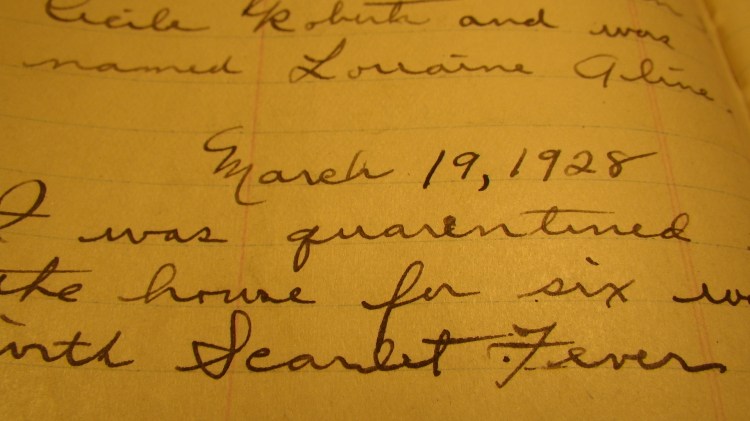 Cecile Roberts and was
named Lorraine Aline.
March 19, 1928
I was quarentined
the house for six
with Scarlet Fever